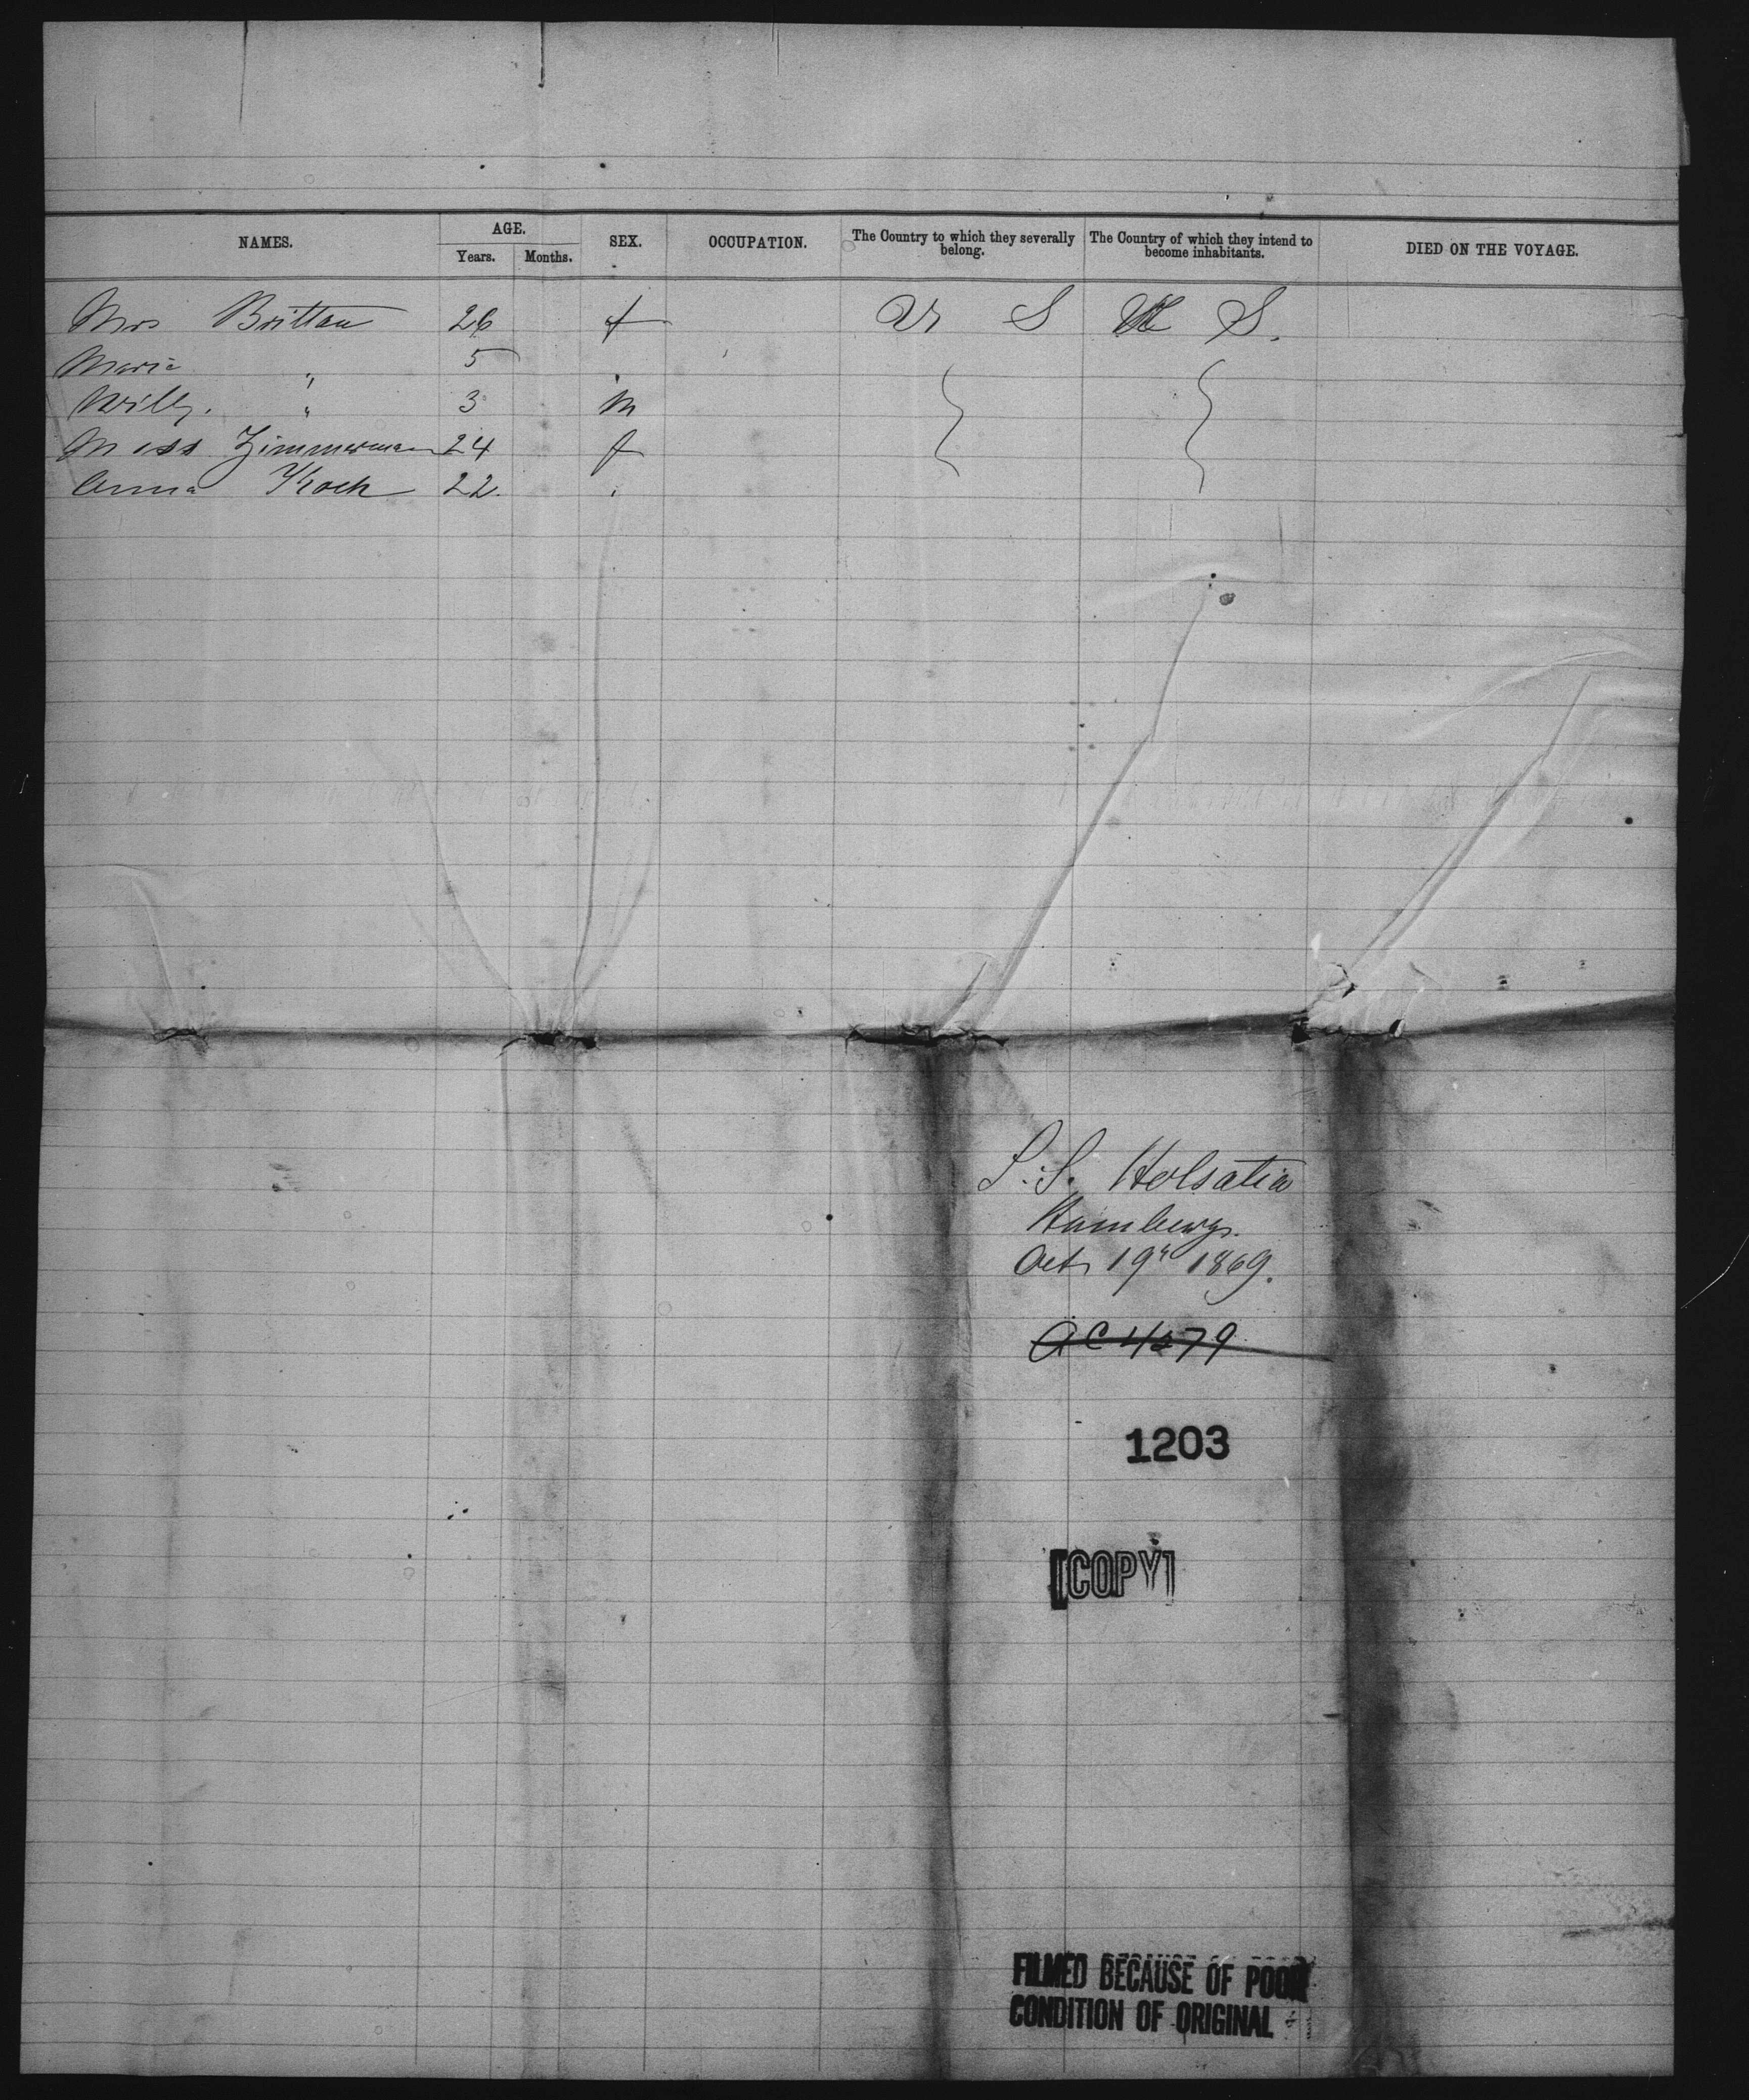 NAMES. AGE. Years. Months. SEX. OCCUPATION. The Country to which they severally belong. The Country of which they intend to become inhabitants. DIED ON THE VOYAGE.
Mrs Brittan 26 f U S U S.
Maria " 5 "
Willy. " 3 m
Miss Zimmerman 24 f
Anna Koch 22. "
S.S. Holsatia
Hamburg.
Oct 19th 1869.
1203
[COPY]
FILMED BECAUSE OF POOR
CONDITION OF ORIGINAL